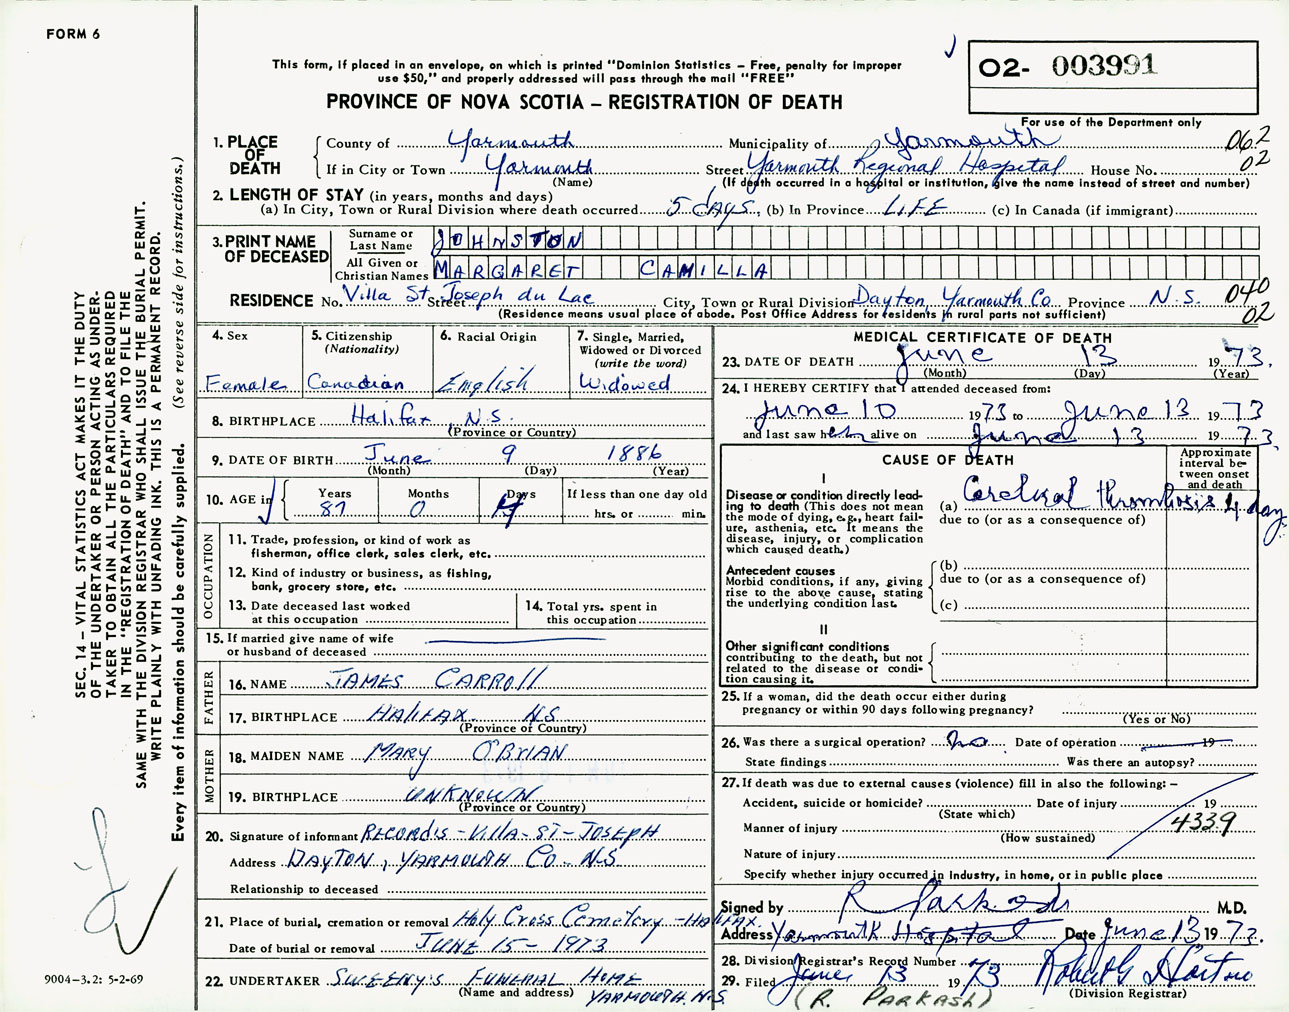 FORM 6
This form, if placed in an envelope, on which is printed "Dominion Statistics – Free, penalty for improper
use $50," and properly addressed will pass through the mail "FREE"
PROVINCE OF NOVA SCOTIA – REGISTRATION OF DEATH
02- 003991
For use of the Department only
1. PLACE OF DEATH
County of Yarmouth Municipality of Yarmouth 062
If in City or Town Yarmouth Street Yarmouth Regional Hospital House No. 02
(Name) (If death occurred in a hospital or institution, give the name instead of street and number)
2. LENGTH OF STAY (in years, months and days)
(a) In City, Town or Rural Division where death occurred 5 days, (b) In Province LIFE (c) In Canada (if immigrant)
3. PRINT NAME OF DECEASED
Surname or Last Name JOHNSTON
All Given or Christian Names MARGARET CAMILLA
RESIDENCE No. Villa St. Joseph du Lac Street City, Town or Rural Division Dayton, Yarmouth Co Province N.S. 040
(Residence means usual place of abode. Post Office Address for residents in rural parts not sufficient) 02
4. Sex
Female
5. Citizenship
(Nationality)
Canadian
6. Racial Origin
English
7. Single, Married,
Widowed or Divorced
(write the word)
Widowed
8. BIRTHPLACE Halifax N.S.
(Province or Country)
9. DATE OF BIRTH June 9 1886
(Month) (Day) (Year)
10. AGE in
Years Months Days If less than one day old
87 0 4 hrs. or min.
OCCUPATION
11. Trade, profession, or kind of work as
fisherman, office clerk, sales clerk, etc.
12. Kind of industry or business, as fishing,
bank, grocery store, etc.
13. Date deceased last worked
at this occupation
14. Total yrs. spent in
this occupation
15. If married give name of wife
or husband of deceased
FATHER
16. NAME JAMES CARROLL
17. BIRTHPLACE HALIFAX NS
(Province or Country)
MOTHER
18. MAIDEN NAME MARY O'BRIAN
19. BIRTHPLACE UNKNOWN
(Province or Country)
20. Signature of informant RECORDS - VILLA - ST - JOSEPH
Address DAYTON, YARMOUTH CO - N.S
Relationship to deceased
21. Place of burial, cremation or removal Holy Cross Cemetery - HALIFAX.
Date of burial or removal JUNE 15 - 1973
22. UNDERTAKER SWEENY'S FUNERAL HOME
(Name and address) YARMOUTH. N.S.
MEDICAL CERTIFICATE OF DEATH
23. DATE OF DEATH June 13 1973.
(Month) (Day) (Year)
24. I HEREBY CERTIFY that I attended deceased from:
June 10 1973 to June 13 1973
and last saw her alive on June 13 1973.
CAUSE OF DEATH
Approximate
interval be-
tween onset
and death
I
Disease or condition directly lead-
ing to death (This does not mean
the mode of dying, e.g., heart fail-
ure, asthenia, etc. It means the
disease, injury, or complication
which caused death.)
(a) Cerebral thrombosis 4 day
due to (or as a consequence of)
Antecedent causes
Morbid conditions, if any, giving
rise to the above cause, stating
the underlying condition last.
(b)
due to (or as a consequence of)
(c)
II
Other significant conditions
contributing to the death, but not
related to the disease or condi-
tion causing it.
25. If a woman, did the death occur either during
pregnancy or within 90 days following pregnancy?
(Yes or No)
26. Was there a surgical operation? no Date of operation 19
State findings Was there an autopsy?
27. If death was due to external causes (violence) fill in also the following: –
Accident, suicide or homicide? Date of injury 19
(State which)
Manner of injury 4339
(How sustained)
Nature of injury
Specify whether injury occurred in industry, in home, or in public place
Signed by R Parkash M.D.
Address Yarmouth Hospital Date June 13 1973.
28. Division Registrar's Record Number
29. Filed June 13 1973
(Division Registrar)
(R. PARKASH)
SEC. 14 – VITAL STATISTICS ACT MAKES IT THE DUTY
OF THE UNDERTAKER OR PERSON ACTING AS UNDER-
TAKER TO OBTAIN ALL THE PARTICULARS REQUIRED
IN THE "REGISTRATION OF DEATH" AND TO FILE THE
SAME WITH THE DIVISION REGISTRAR WHO SHALL ISSUE THE BURIAL PERMIT.
WRITE PLAINLY WITH UNFADING INK. THIS IS A PERMANENT RECORD.
(See reverse side for instructions.)
Every item of information should be carefully supplied.
9004–3.2: 5-2-69